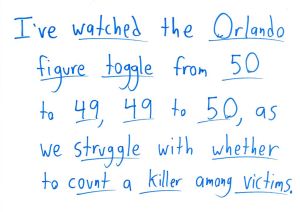 I've watched the Orlando
figure toggle from 50
to 49, 49 to 50, as
we struggle with whether
to count a killer among victims.